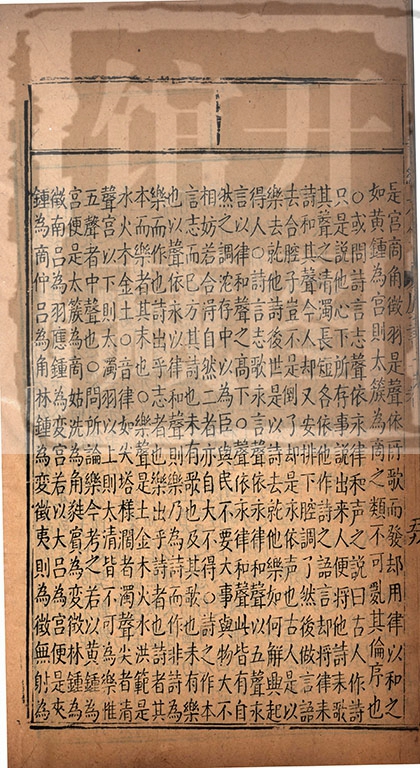 是宮商角徵羽是聲依所歌而發却用律以和之
如黃鍾為宮則太簇為商之類不可亂其倫序也
○或問詩言志聲依永律和聲曰古人作詩
只是說他心下所存事說出來人便將他詩來歌
其聲之清濁長短各依他作詩之語言却將律來
調和其聲今人却又安排下腔調了然後做語言
去合腔子豈不是倒了却是永依聲也古人是以
樂去就他詩後世是以詩去就他樂如何解興起
得人○詩言志歌永言聲依永律和聲以五聲依
永以律和聲之高下○聲依永律和聲此皆有自
然之調沈存中以為臣與民不要大事與物不大
相妨若合得自然二者亦自大不得○詩之作本
言志而已方其詩也未有歌也及其歌也未有樂
也以聲依永以律和聲則樂乃為詩而作非詩為
樂而作也詩出乎志者也樂出乎詩者也詩者其
本而樂者其末也○樂聲是土金木火水洪範是
水火木金土○音律如尖塔樣闊者濁聲尖者清
聲宮以下則太濁羽以上則太清皆不可為樂惟
五聲者中聲也○問所論樂今考之若以黃鍾為
宮便是太簇為商姑洗為角蕤賓為變徵林鍾為
徵南呂為羽應鍾為變宮若以大呂為宮便是夾
鍾為商仲呂為角林鍾為變徵夷則為徵無射為